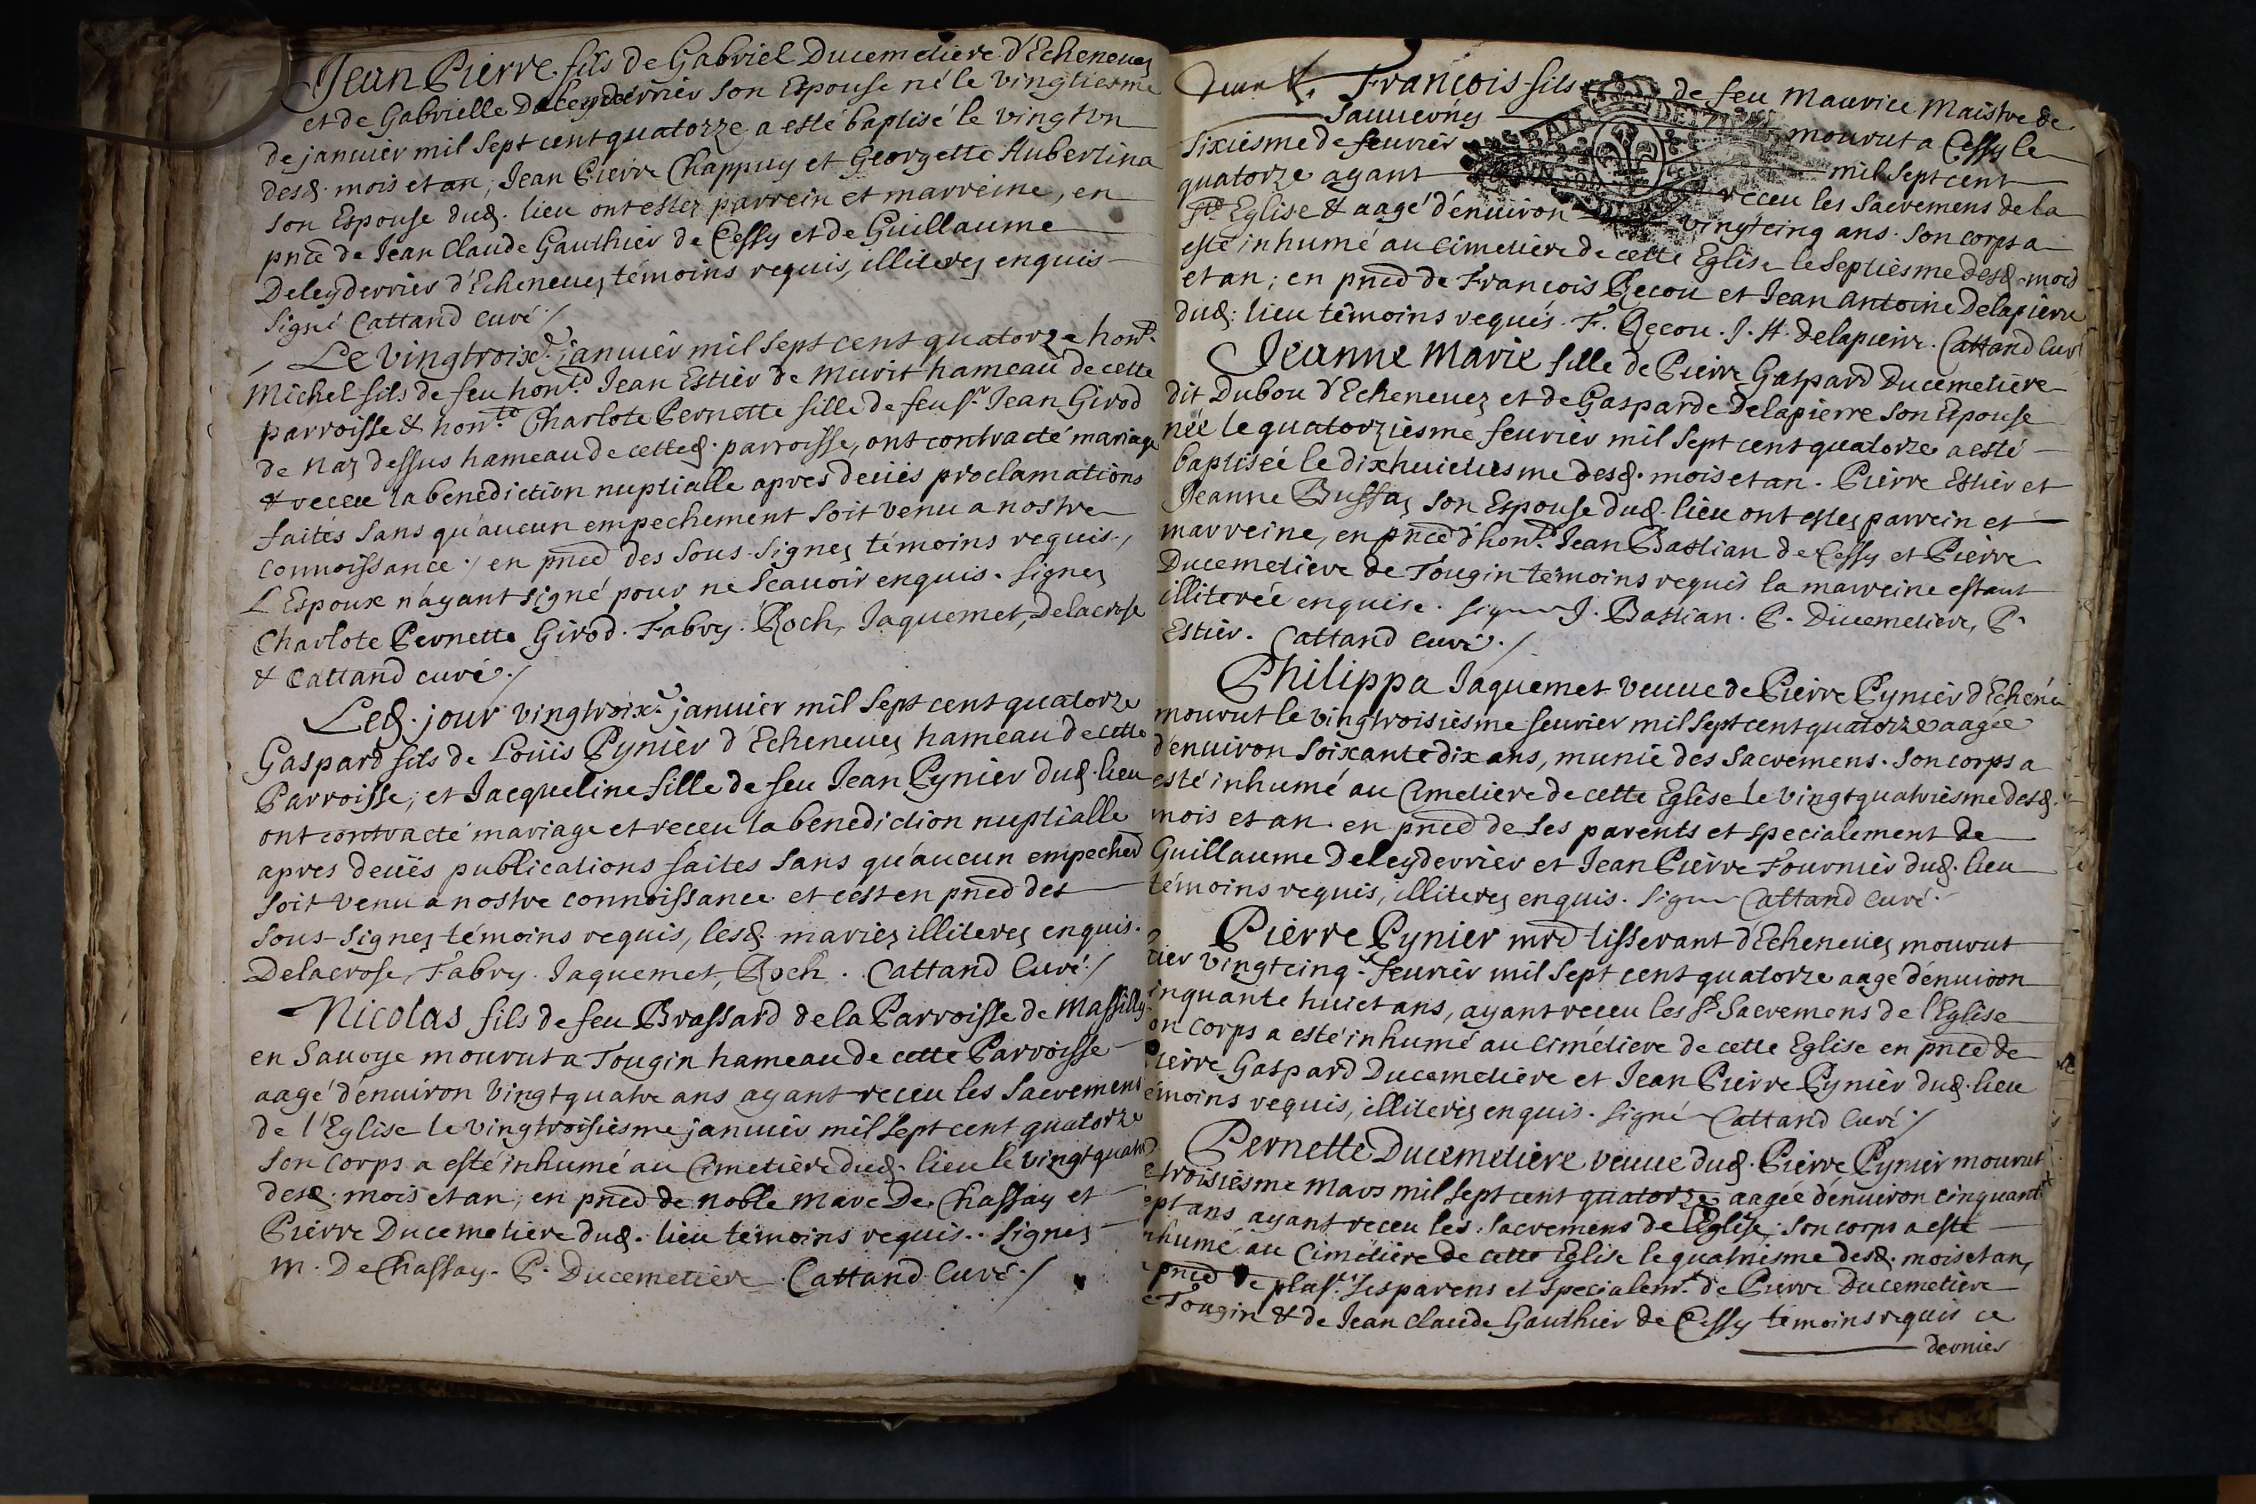 Jean Pierre fils de Gabriel Ducemetiere d'Echeneuez
et de Gabrielle Deleyderrier son Epouse né le vingtiesme
de januier mil sept cent quatorze a esté baptisé le vingt vn
desd. mois et an, Jean Pierre Chappuy et Georgette Hubertina
son Espouse dud. lieu ont estez parrein et marreine, en
pnce de Jean Claude Gauthier de Cessy et de Guillaume
Deleyderrier d'Echeneuez témoins requis, illiterez enquis
signé Cattand curé /
Le vingtroixe. januier mil sept cent quatorze hont.
Michel fils de feu hont. Jean Estier de Murit hameau de cette
parroisse & honte. Charlote Pernette fille de feu sr. Jean Girod
de Naz dessus hameau de cetted. parroisse, ont contracté mariage
& receu la benediction nuptialle apres deües proclamations
faites sans qu'aucun empechement soit venu a nostre
connoissance / en pnce des sous-signez témoins requis,
L'Espoux n'ayant signé pour ne sçauoir enquis. signez
Charlote Pernette Girod. Fabry. Roch, Jaquemet, Delacrose
& Cattand curé /
Led. jour vingtroixe. januier mil sept cent quatorze
Gaspard fils de Loüis Pynier d'Echeneuez hameau de cette
Parroisse, et Jacqueline fille de feu Jean Pynier dud. lieu
ont contracté mariage et receu la benediction nuptialle
apres deües publications faites sans qu'aucun empechet
soit venu a nostre connoissance et c'est en pnce des
sous-signez témoins requis, lesd. mariez illiterez enquis.
Delacrose, Fabry. Jaquemet, Roch. Cattand Curé /
Nicolas fils de feu Brassard de la Parroisse de Massilly
en Sauoye mourut a Tougin hameau de cette Parroisse
aagé d'enuiron vingt quatre ans ayant receu les Sacremens
de l'Eglise le vingtroisiesme januier mil sept cent quatorze
son corps a esté inhumé au Cimetiere dud. lieu le vingt quatre
desd. mois et an, en pnce de noble Marc De Chassay et
Pierre Ducemetiere dud. lieu témoins requis. signez
M. De Chassay. P. Ducemetiere. Cattand Curé /
François fils de feu Maurice Maistre de
Sauuerny mourut a Cessy le
sixiesme de feurier mil sept cent
quatorze ayant receu les Sacremens de la
Ste Eglise & aagé d'enuiron vingt cinq ans. son corps a
esté inhumé au cimetiere de cette Eglise le septiesme desd. mois
et an; en pnce de François Reçou et Jean Antoine Delapierre
dud. lieu témoins requis. F. Reçou. J. A. Delapierre. Cattand Curé
Jeanne Marie fille de Pierre Gaspard Ducemetiere
dit Dubou d'Echeneuez et de Gasparde Delapierre son Espouse
née le quatorziesme feurier mil sept cent quatorze a esté
baptisée le dixhuictiesme desd. mois et an. Pierre Estier et
Jeanne Bussaz son Espouse dud. lieu ont estez parrein et
marreine, en pnce d'hont. Jean Bastian de Cessy et Pierre
Ducemetiere de Tougin témoins requis la marreine estant
illiterée enquise. signez J. Bastian. P. Ducemetiere, P.
Estier. Cattand Curé /
Philippa Jaquemet veuue de Pierre Pynier d'Echeneu
mourut le vingtroisiesme feurier mil sept cent quatorze aagée
d'enuiron soixante dix ans, munie des Sacremens. son corps a
esté inhumé au Cimetiere de cette Eglise le vingt quatriesme desd.
mois et an. en pnce de ses parents et specialement de
Guillaume Deleyderrier et Jean Pierre Fournier dud. lieu
témoins requis, illiterez enquis. signé Cattand Curé.
Pierre Pynier mre tisserant d'Echeneuez mourut
ier vingt cinqe. feurier mil sept cent quatorze aagé d'enuiron
inquante huict ans, ayant receu les Sts Sacremens de l'Eglise
on corps a esté inhumé au Cimétiere de cette Eglise en pnce de
ierre Gaspard Ducemetiere et Jean Pierre Pynier dud. lieu
émoins requis, illiterez enquis. signé Cattand Curé /
Pernette Ducemetiere veuue dud. Pierre Pynier mourut
troisiesme Mars mil sept cent quatorze aagée d'enuiron cinquante
ept ans ayant receu les Sacremens de l'Eglise, son corps a esté
nhumé au Cimetiere de cette Eglise le quatriesme desd. mois et an,
pnce de plusrs. ses parens et specialemt. de Pierre Ducemetiere
e Tougin & de Jean Claude Gauthier de Cessy témoins requis ce
dernier